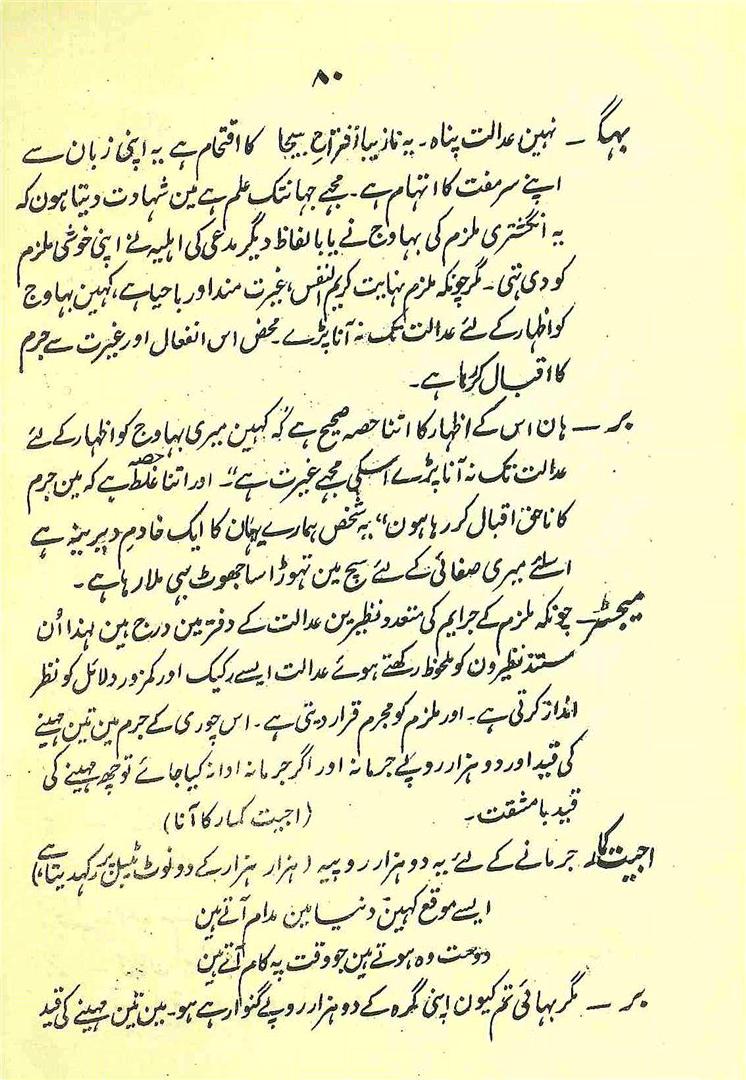 ۸۰
بہگ ۔ نہین عدالت پناہ ۔ یہ نازیبا افتراح بیجا کا اقتحام ہے یہ اپنی زبان سے
اپنے سر مفت کا اتہام ہے ۔ مجہے جہانتک علم ہے مین شہادت دیتا ہون کہ
یہ انگشتری ملزم کی بہاوج نے یا بالفاظ دیگر مدعی کی اہلیہ نے اپنی خوشی ملزم
کو دی تہی ۔ مگر چونکہ ملزم نہایت کریم النفس، غیرت مند اور باحیا ہے، کہین بہاوج
کو اظہار کے لئے عدالت تک نہ آنا پڑے ۔ محض اس انفعال اور غیرت سے جرم
کا اقبال کرتا ہے ۔
بر ۔ ہان اس کے اظہار کا اتنا حصہ صحیح ہے کہ کہین میری بہاوج کو اظہار کے لئے
عدالت تک نہ آنا پڑے اسکی مجہے غیرت ہے" ۔ اور اتنا حصہ غلط ہے کہ مین جرم
کا ناحق اقبال کر رہا ہون" یہ شخص ہمارے یہان کا ایک خادم دیرینہ ہے
اسلئے میری صفائی کے لئے سچ مین تہوڑا سا جھوٹ بہی ملا رہا ہے ۔
میجسٹر ۔ چونکہ ملزم کے جرایم کی متعدد نظیرین عدالت کے دفتر مین درج ہین لہذا اُن
مستند نظیرون کو ملحوظ رکھتے ہوئے عدالت ایسے رکیک اور کمزور دلائل کو نظر
انداز کرتی ہے ۔ اور ملزم کو مجرم قرار دیتی ہے ۔ اس چوری کے جرم مین تین مہینے
کی قید اور دو ہزار روپئے جرمانہ اور اگر جرمانہ ادا نہ کیا جائے تو چھ مہینے کی
قید با مشقت ۔ (اجیت کمار کا آنا)
اجیت کما ۔ جرمانے کے لئے یہ دو ہزار روپیہ (ہزار ہزار کے دو نوٹ ٹیبل پر رکہدیتا ہے)
ایسے موقع کہین دنیا مین مدام آتے ہین
دوست وہ ہوتے ہین جو وقت پہ کام آتے ہین
بر ۔ مگر بہائی تم کیون اپنی گرہ کے دو ہزار روپئے گنوا رہے ہو ۔ مین تین مہینے کی قید